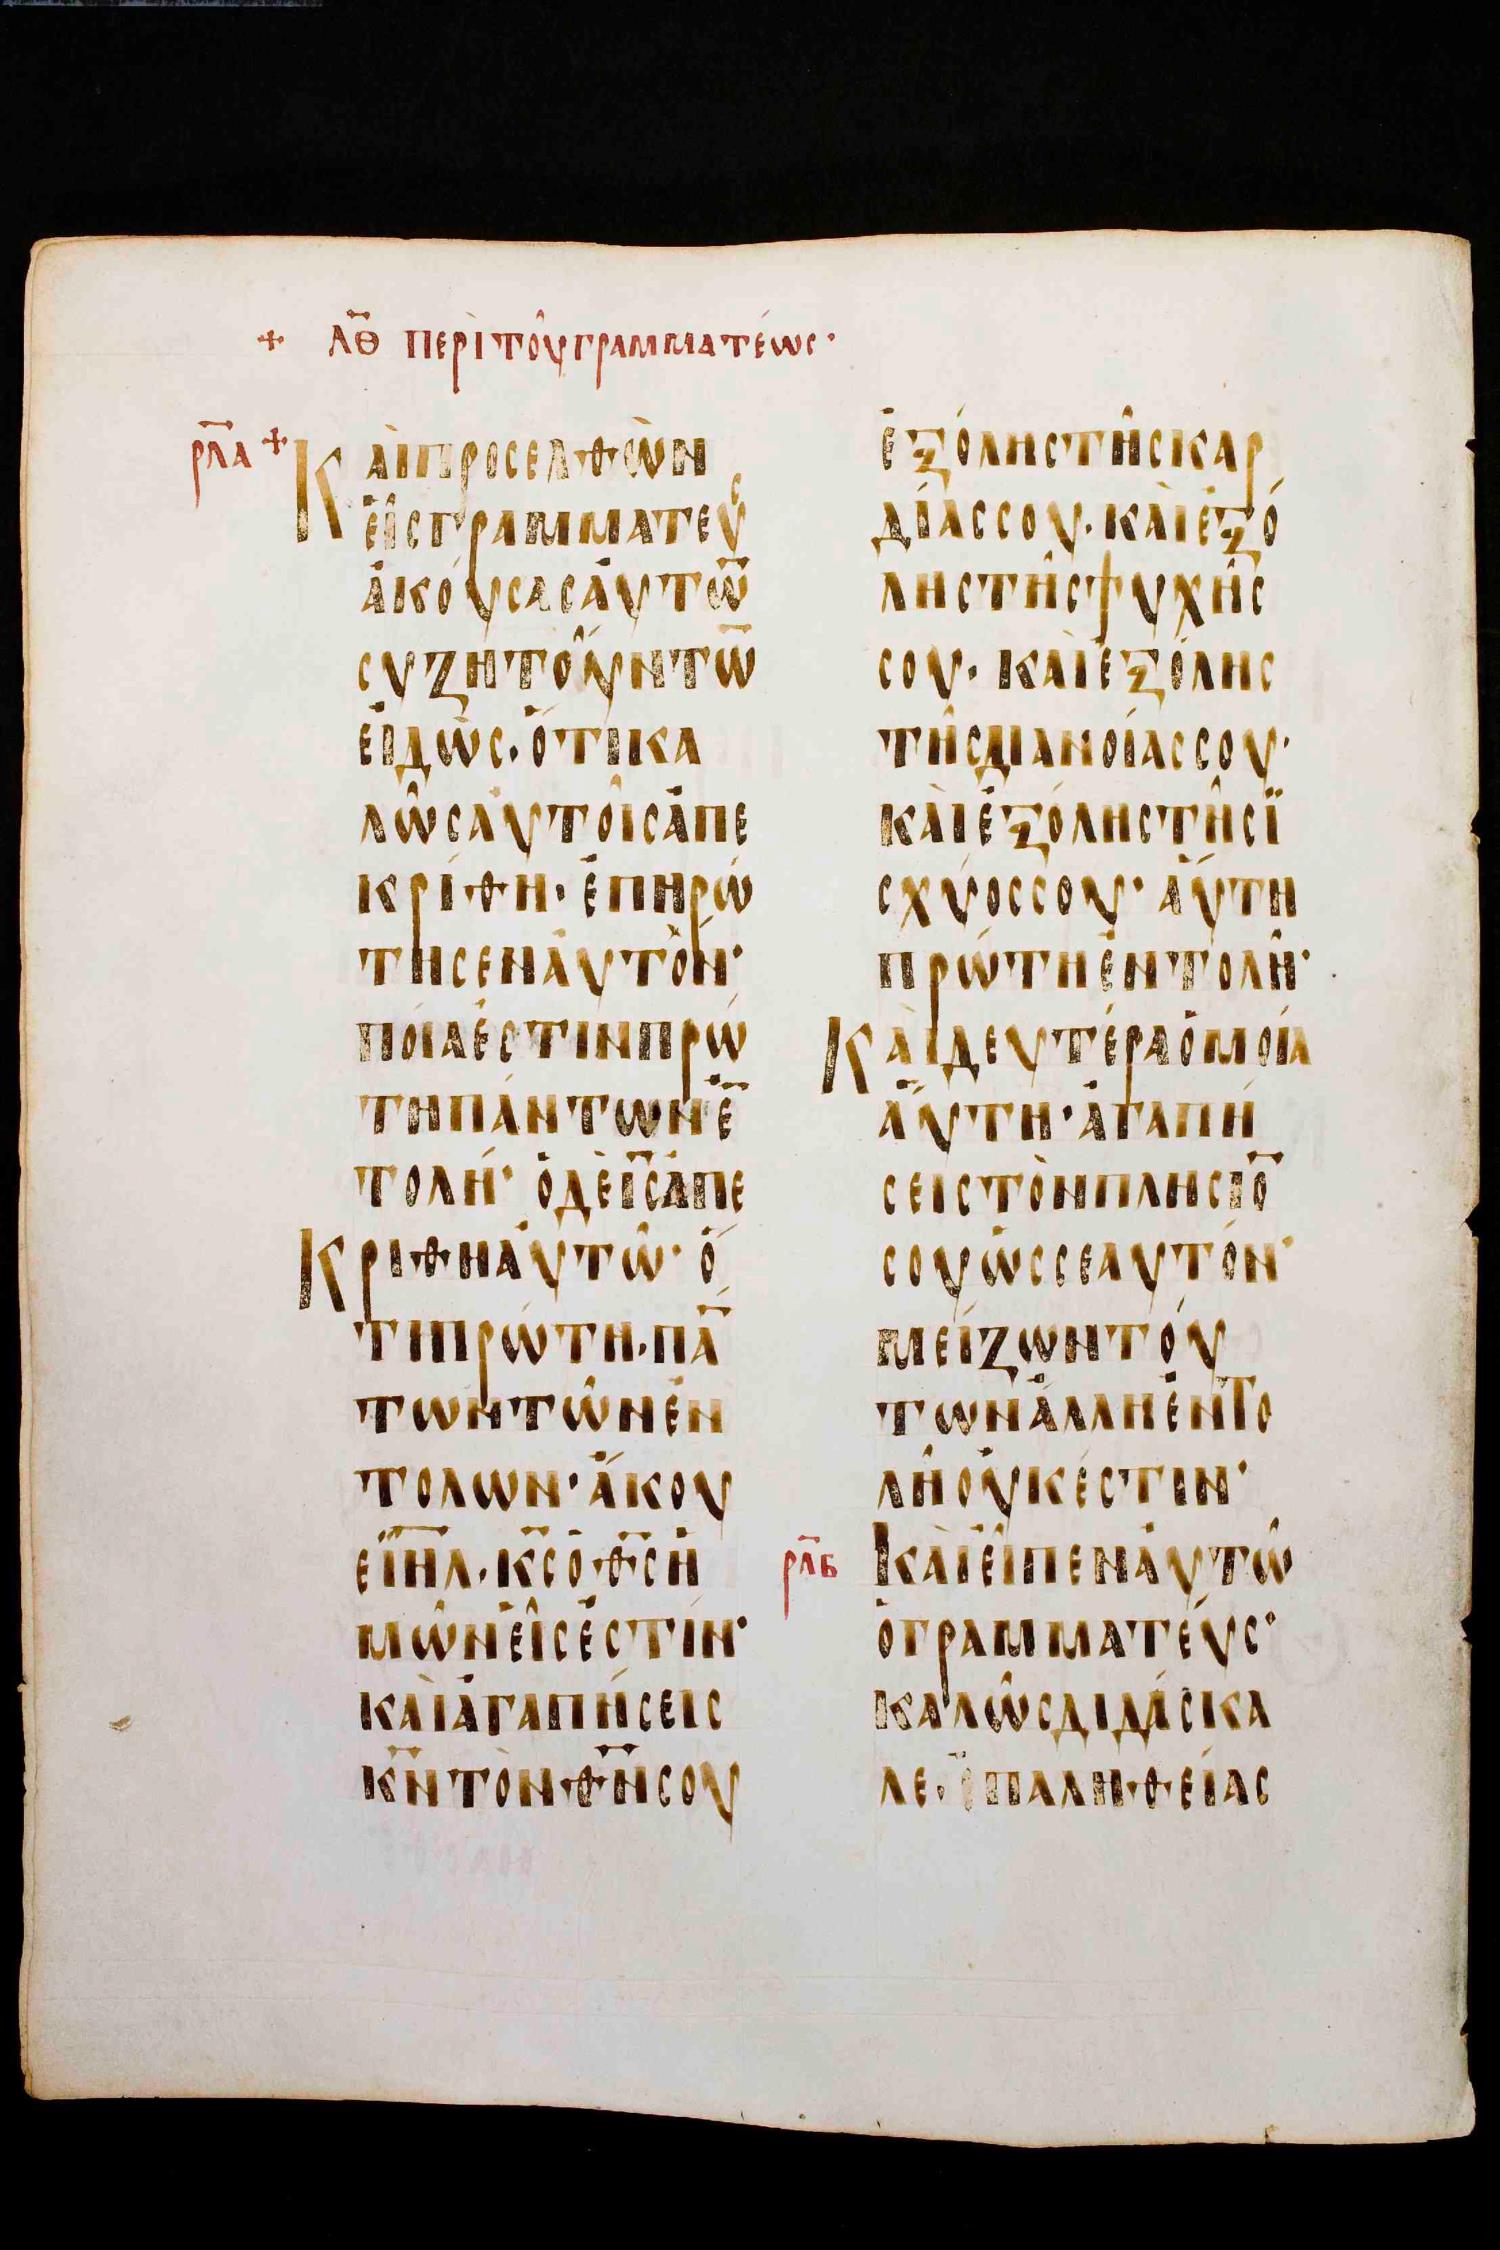 + Λ̅Θ̅ ΠΕΡῚ ΤΟΥ͂ ΓΡΑΜΜΑΤΈΩС·
ΡΛΑ +
ΚΑῚ ΠΡΟСΕΛΘῺΝ
ΕἿС ΓΡΑΜΜΑΤΕΥС
ἈΚΟΎСΑС ἈΥΤΩ̅
СΥΖΗΤΟΎΝΤΩ̅
ΕἸΔῺС· ὍΤΙ ΚΑ
ΛΩ͂С ἈΥΤΟΙ͂С ἈΠΕ
ΚΡΊΘΗ· ἘΠΗΡΏ
ΤΗСΕΝ ἈΥΤῸΝ·
ΠΟΊΑ ἘСΤΙΝ ΠΡΏ
ΤΗ ΠΆΝΤΩΝ Ἐ̅
ΤΟΛΉ· Ὁ ΔῈ Ι̅С̅ ἈΠΕ
ΚΡΙΘΗ ἈΥΤΩ͂· Ὅ
ΤΙ ΠΡΏΤΗ· ΠΑ̅
ΤΩΝ ΤΩ͂Ν ἘΝ
ΤΟΛΩΝ· ἌΚΟΥ
Ε Ι̅Η̅Λ̅· Κ̅С̅ Ὁ Θ̅С̅ Ἡ
ΜΩ͂Ν ΕἿС ἘСΤΊΝ·
ΚΑῚ ἈΓΑΠΉСΕΙС
Κ̅Ν̅ ΤῸΝ Θ̅Ν̅ СΟΥ
ἘΞ ὍΛΗС ΤΗ͂С ΚΑΡ
ΔΊΑС СΟΥ· ΚΑῚ ἘΞ Ὅ
ΛΗС ΤΗ͂С ΨΥΧΗ͂С
СΟΥ· ΚΑῚ ἘΞ ὍΛΗС
ΤΗ͂С ΔΙΑΝΟΊΑС СΟΥ·
ΚΑῚ ἘΞ ὍΛΗС ΤΗ͂С Ϊ
СΧΎΟС СΟΥ· ἍΥΤΗ
ΠΡΏΤΗ ἘΝΤΟΛΉ·
ΚΑῚ ΔΕΥΤΈΡΑ ὉΜΟΊΑ
ἍΥΤΗ· ἈΓΑΠΉ
СΕΙС ΤῸΝ ΠΛΗСΙΟ̅
СΟΥ ὩС СΕΑΥΤΌΝ·
ΜΕΊΖΩΝ ΤΟΎ
ΤΩΝ ἌΛΛΗ ἘΝΤΟ
ΛῊ ΟΥ̓Κ ἜСΤΙΝ·
ΡΛΒ
ΚΑῚ ΕἾΠΕΝ ἈΥΤΩ͂
Ὁ ΓΡΑΜΜΑΤΕΎС·
ΚΑΛΩ͂С ΔΙΔΆСΚΑ
ΛΕ· ἘΠΑΛΗΘΕΊΑС